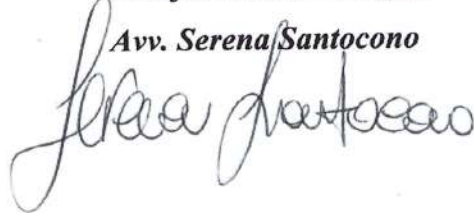 Avv. Serena Santocono
Serena Santocono